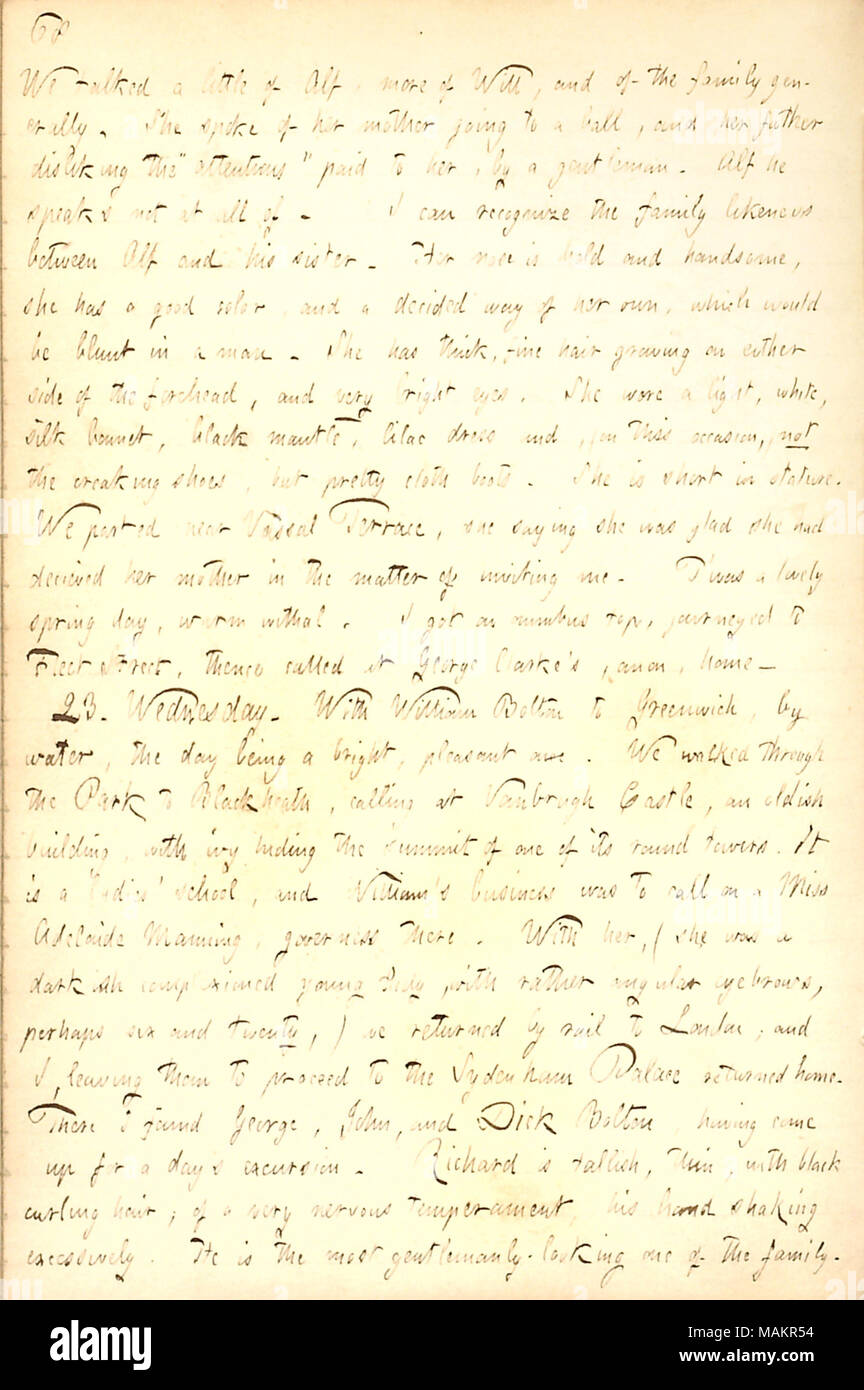 68
We talked a little of Alf, more of Will, and of the family gen-
erally. She spoke of her mother going to a ball, and her father
disliking the "attentions" paid to her, by a gentleman. Alf he
speaks not at all of. I can recognize the family likeness
between Alf and his sister. Her nose is bold and handsome,
she has a good color, and a decided way of her own, which would
be blunt in a man. She has thick, fine hair growing on either
side of the forehead, and very bright eyes. She wore a light, white,
silk bonnet, black mantle, lilac dress and, on this occasion, not
the creaking shoes, but pretty cloth boots. She is short in stature.
We parted near Vassal Terrace, she saying she was glad she had
decieved her mother in the matter of inviting me. Twas a lovely
spring day, warm withal. I got on omnibus top, journeyed to
Fleet Street, thence called at George Clarke's, anon, home.
23. Wednesday. With William Bolton to Greenwich, by
water, the day being a bright, pleasant one. We walked through
the Park to Blackheath, calling at Vanbrugh Castle, an oldish
building, with ivy hiding the summit of one of its round towers. It
is a ladies' school, and William's business was to call on a Miss
Adelaide Manning, governess there. With her, (she was a
darkish complexioned young lady, with rather angular eyebrows,
perhaps six and twenty,) we returned by rail to London; and
I, leaving them to proceed to the Sydenham Palace returned home.
There I found George, John, and Dick Bolton, having come
up for a day's excursion. Richard is tallish, thin, with black
curling hair; of a very nervous temperament, his hand shaking
excessively. He is the most gentlemanly-looking one of the family.
alamy
Image ID: MAKR54
www.alamy.com